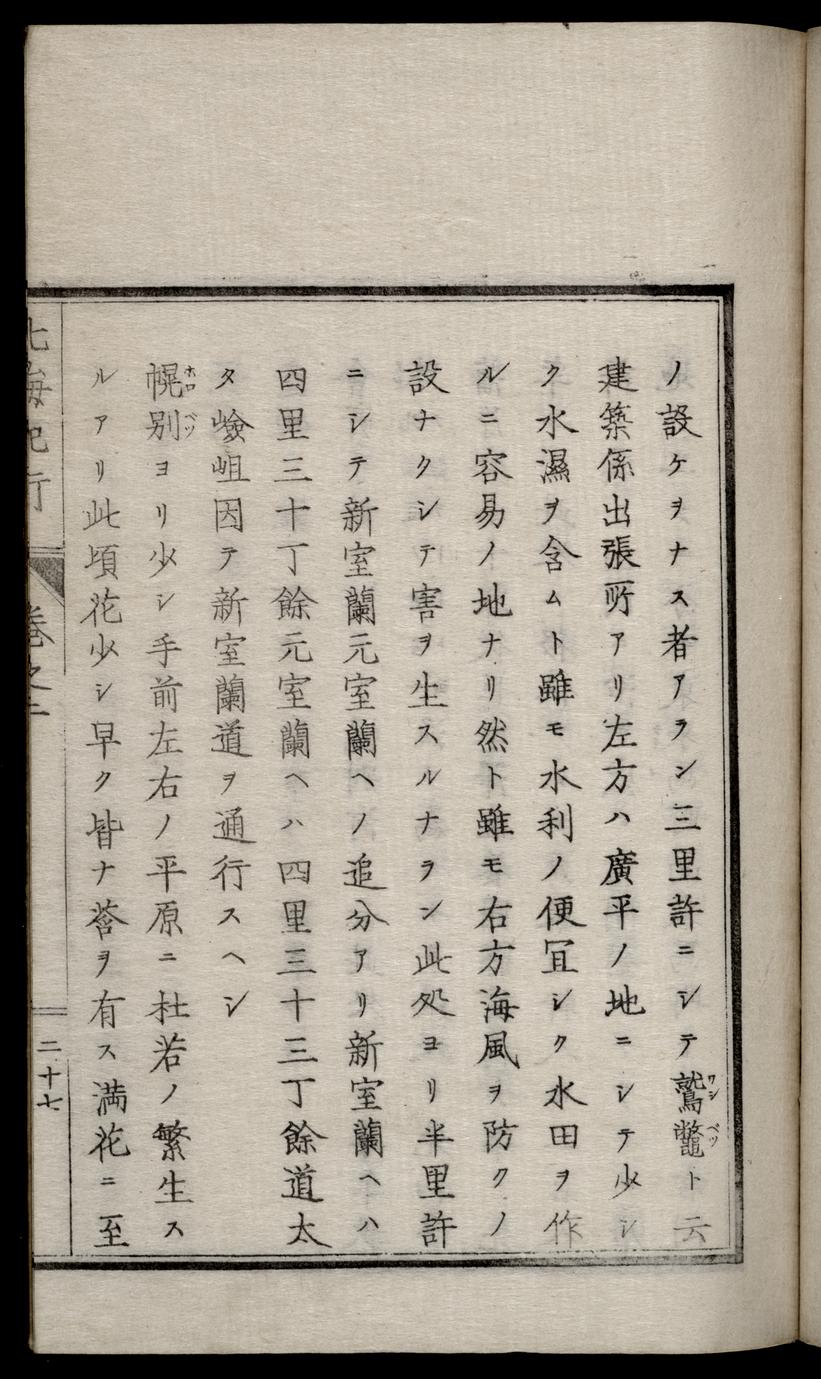 ノ設ケヲナス者アラン三里許ニシテ鷲鼈ト云
ワシ ベツ
建築係出張所アリ左方ハ廣平ノ地ニシテ少シ
ク水濕ヲ含ムト雖モ水利ノ便冝シク水田ヲ作
ルニ容易ノ地ナリ然ト雖モ右方海風ヲ防クノ
設ナクシテ害ヲ生スルナラン此処ヨリ半里許
ニシテ新室蘭元室蘭ヘノ追分アリ新室蘭ヘハ
四里三十丁餘元室蘭ヘハ四里三十三丁餘道太
タ嶮岨因テ新室蘭道ヲ通行スヘシ
幌別ヨリ少シ手前左右ノ平原ニ杜若ノ繁生ス
ホロ ベツ
ルアリ此頃花少シ早ク皆ナ莟ヲ有ス満花ニ至
北海紀行 巻之二 二十七